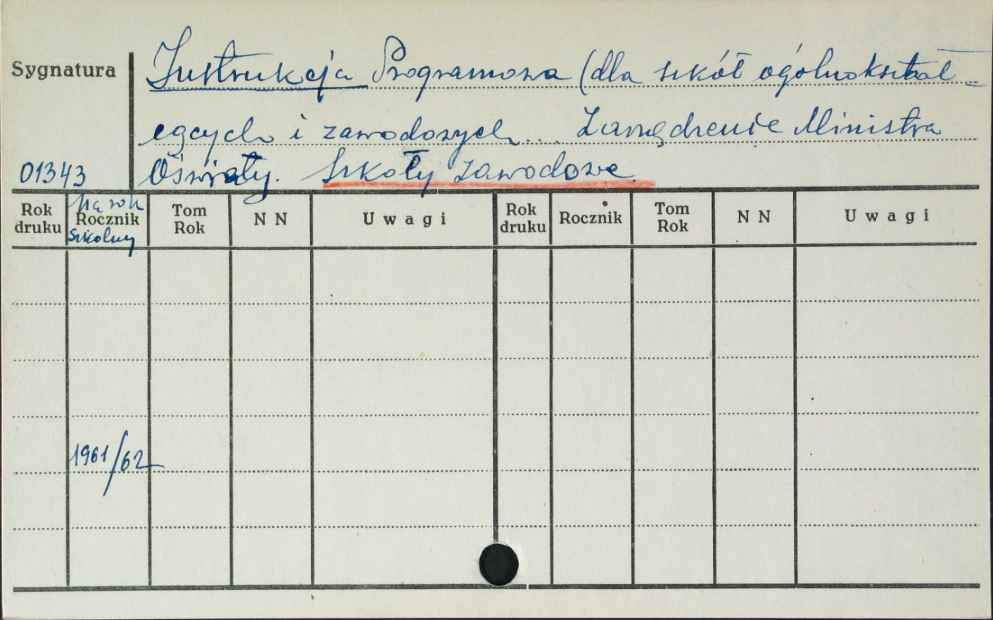 Sygnatura
Instrukcja Programowa (dla szkół ogólnokształ-
cących i zawodowych... Zarządzenie Ministra
01343 Oświaty. Szkoły zawodowe.
Rok druku Na rok Rocznik szkolny Tom Rok N N Uwagi Rok druku Rocznik Tom Rok N N Uwagi
1961/62